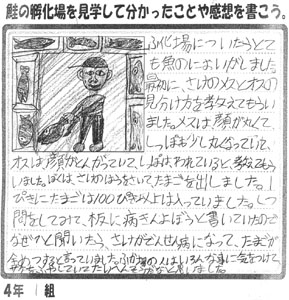 鮭の孵化場を見学して分かったことや感想を書こう。
ふ化場についたらとて
も魚のにおいがしました。
最初に、さけのメスとオスの
見分け方を教えてもらい
ました。メスは顔が丸くて、
しっぽも少し丸くなっていて、
オスは顔がとんがっていて、しっぽはわれていると教えてもら
いました。ぼくは、さけのほうをさいて、たまごを出しました。1
ぴきにたまごは100ぴき以上は入っていました。しつ
問をしてみて、板に病きよぼうと書いていたので
なぜかと聞いたら、さけがでんせん病になって、たまごが
と言っていました。ふ化場の人はいろんな事に気をつけて
4年 1組